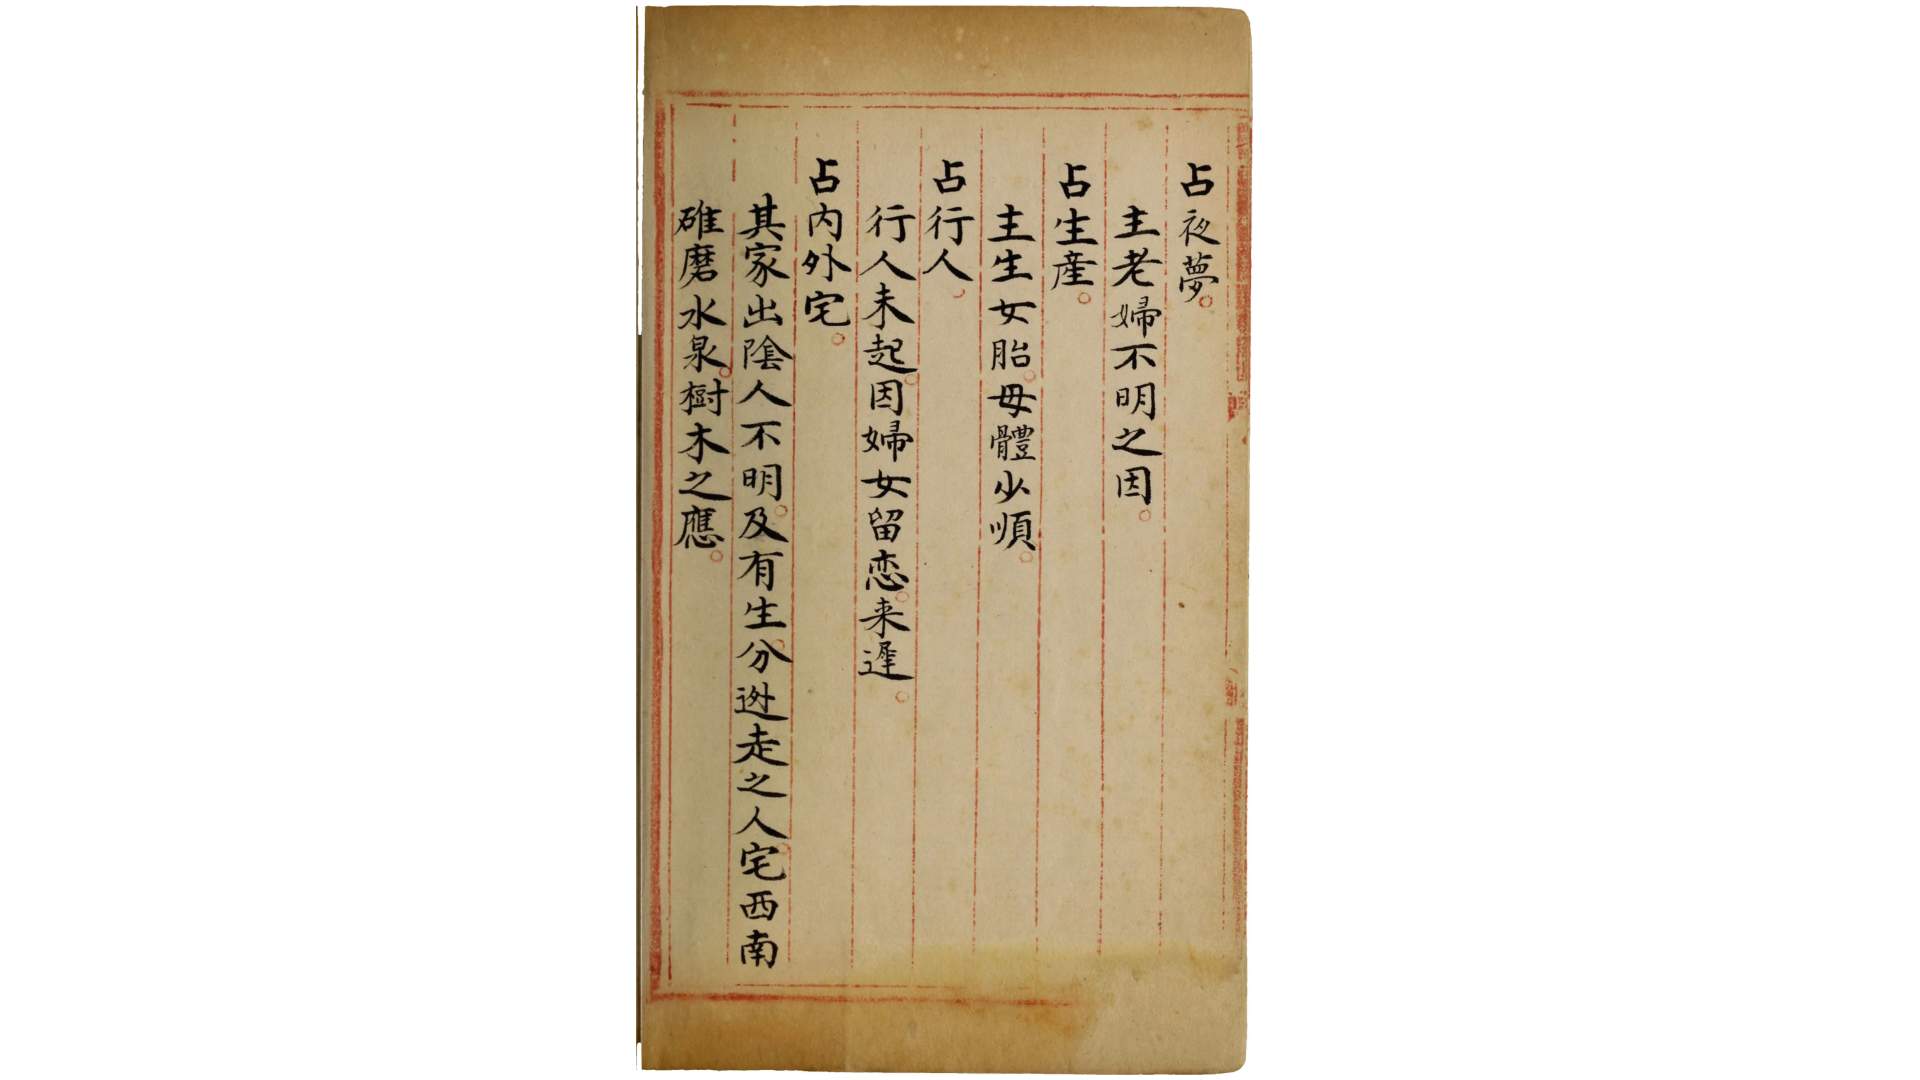 占夜夢。
主老婦不明之因。
占生産。
主生女胎。母體少順。
占行人。
行人未起。因婦女留恋。来遲。
占内外宅。
其家出陰人不明。及有生分。逃走之人。宅西南
碓磨水泉。樹木之應。